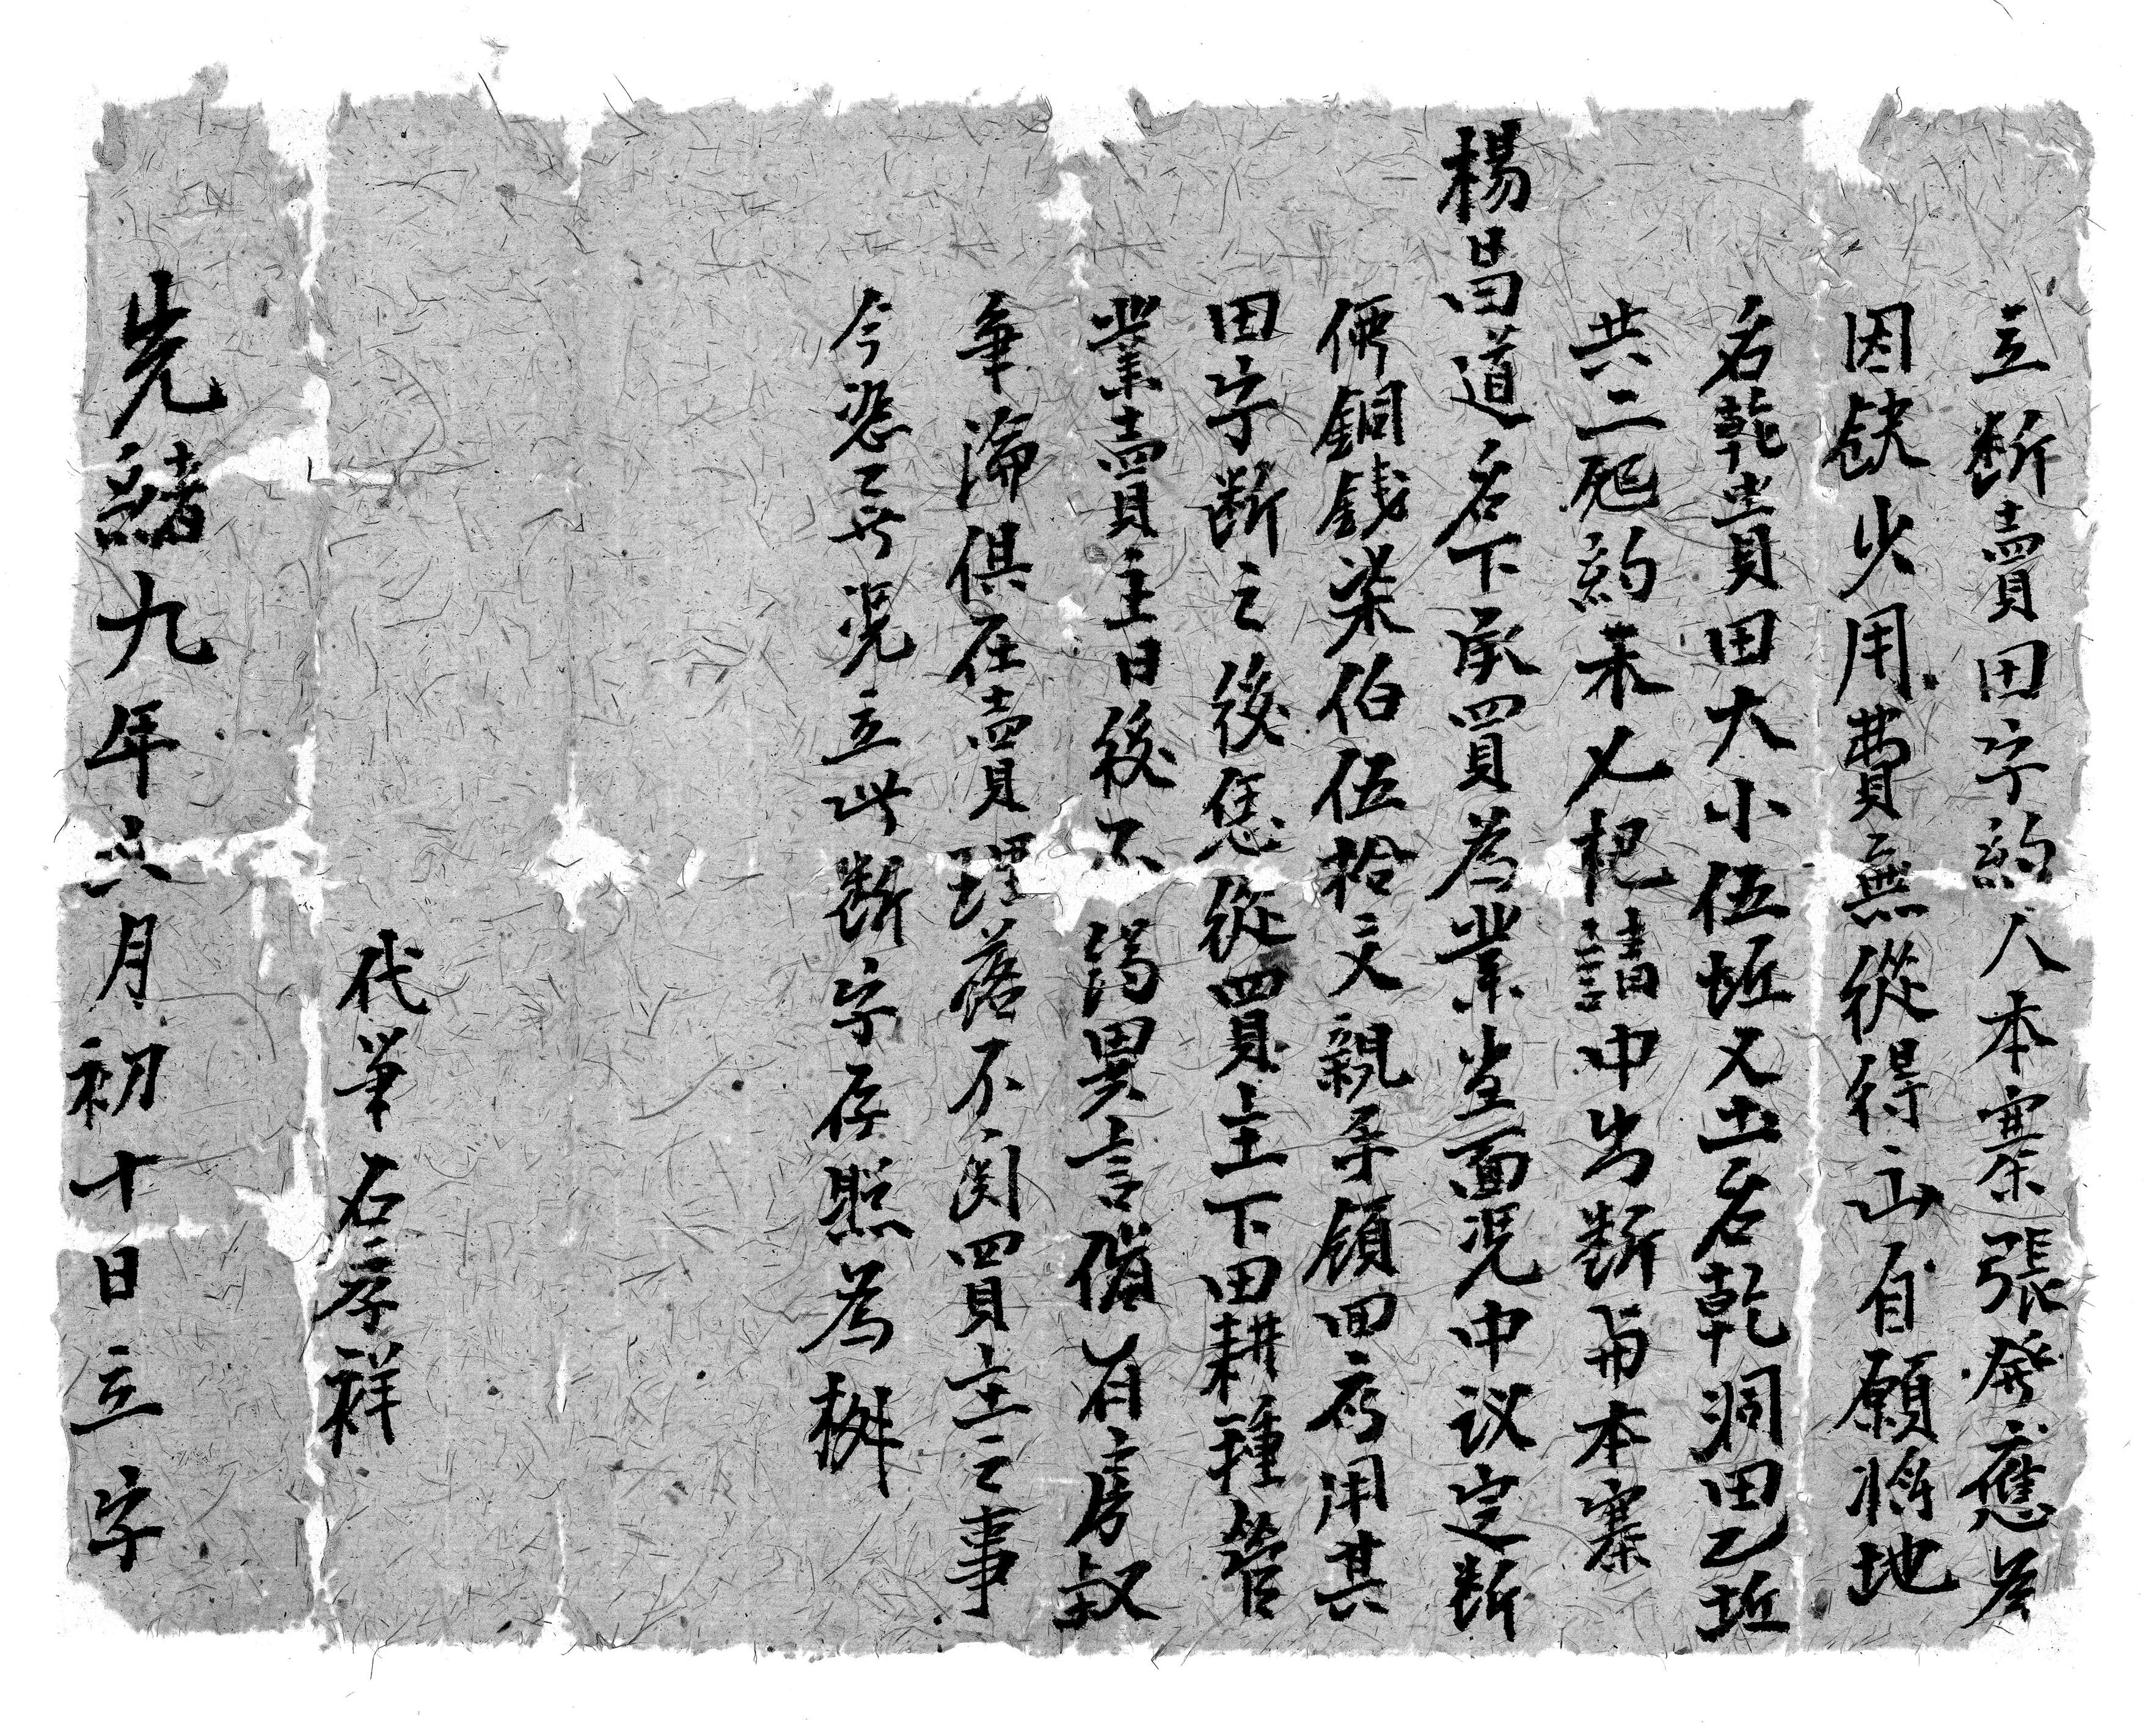 立断賣田字約人本寨張發應為
因缺少用費無從得出自願將地
名乾賣田大小伍坵又土名乾洞田乙坵
共二処約禾乂把請中出断與本寨
楊昌道名下承買為業當面凴中议定断
價銅銭柒伯伍拾文親手領回應用其
田字断之後恁從買主下田耕種管
業賣主日後不得異言倘有房叔
爭論俱在賣理落不関買主之事
今恐無凴立此断字存照為據
代筆石序祥
光緒九年六月初十日立字